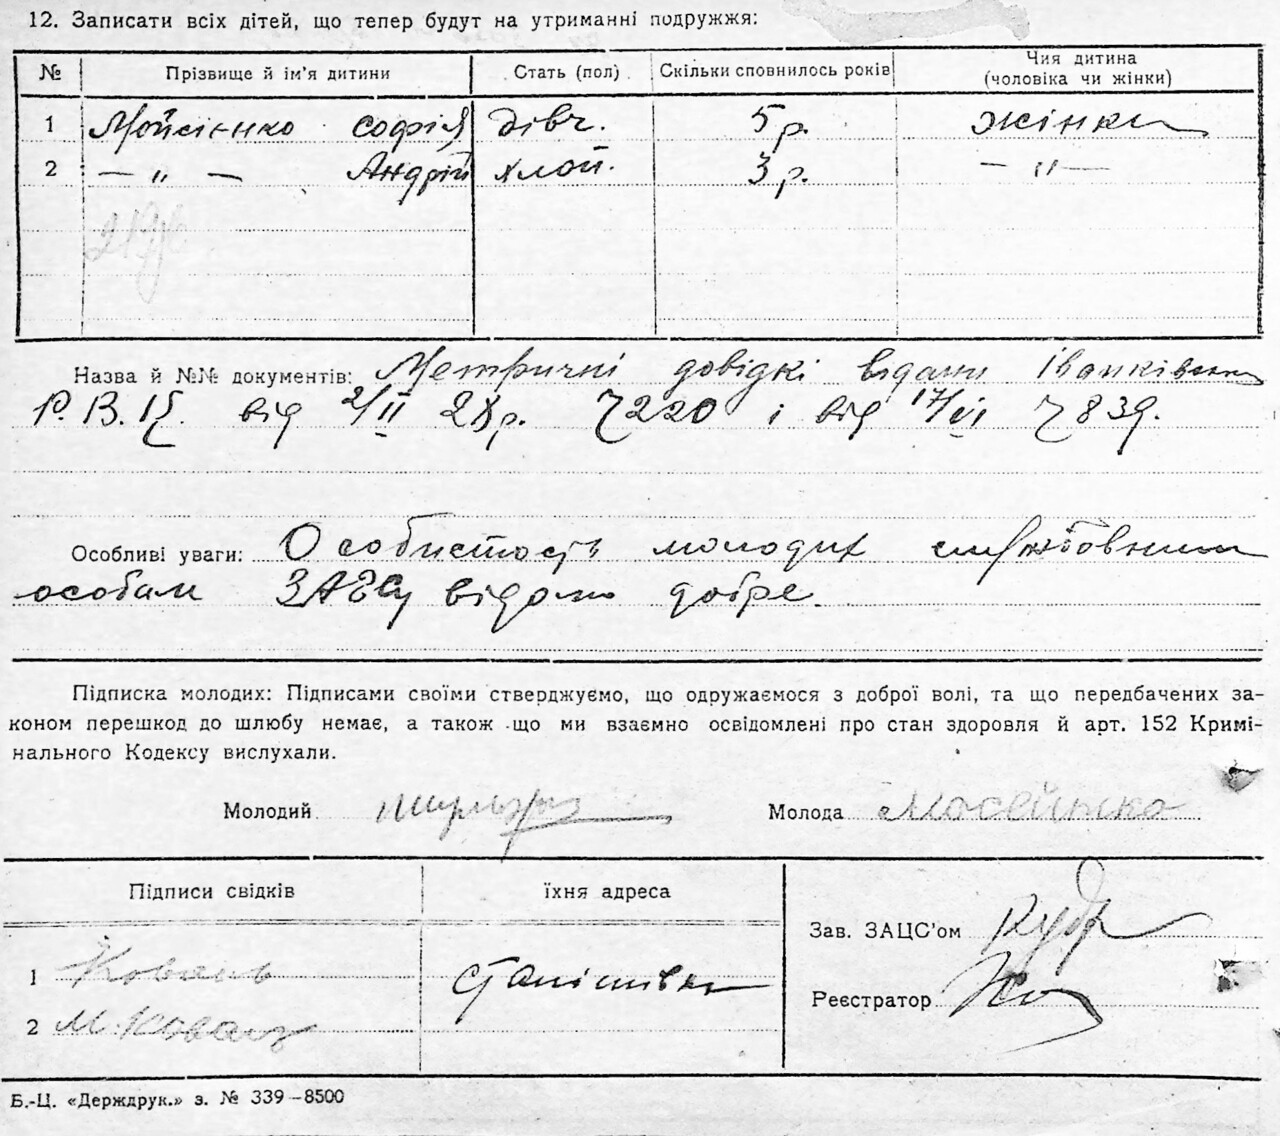 12. Записати всіх дітей, що тепер будут на утриманні подружжя:
№ Прізвище й ім'я дитини Стать (пол) Скільки сповнилось років Чия дитина (чоловіка чи жінки)
1 Мойсієнко Софія дівч. 5 р. жінки
2 — „ — Андрій хлоп. 3 р. — „ —
Назва й №№ документів: Метричні довідкі видани Іванківським
Р.В.К. від 2/II 28 р. 220 і від 17/VI 839.
Особливі уваги: Особистость молодих службовим
особам ЗАГСу відомо добре.
Підписка молодих: Підписами своїми стверджуємо, що одружаємося з доброї волі, та що передбачених за-
коном перешкод до шлюбу немає, а також що ми взаємно освідомлені про стан здоровля й арт. 152 Кримі-
нального Кодексу вислухали.
Молодий Молода Мосейнко
Підписи свідків їхня адреса
Зав. ЗАЦС'ом Кудр
1 Коваль
Реєстратор
2 М. Коваль
Б.-Ц. «Держдрук.» з. № 339–8500